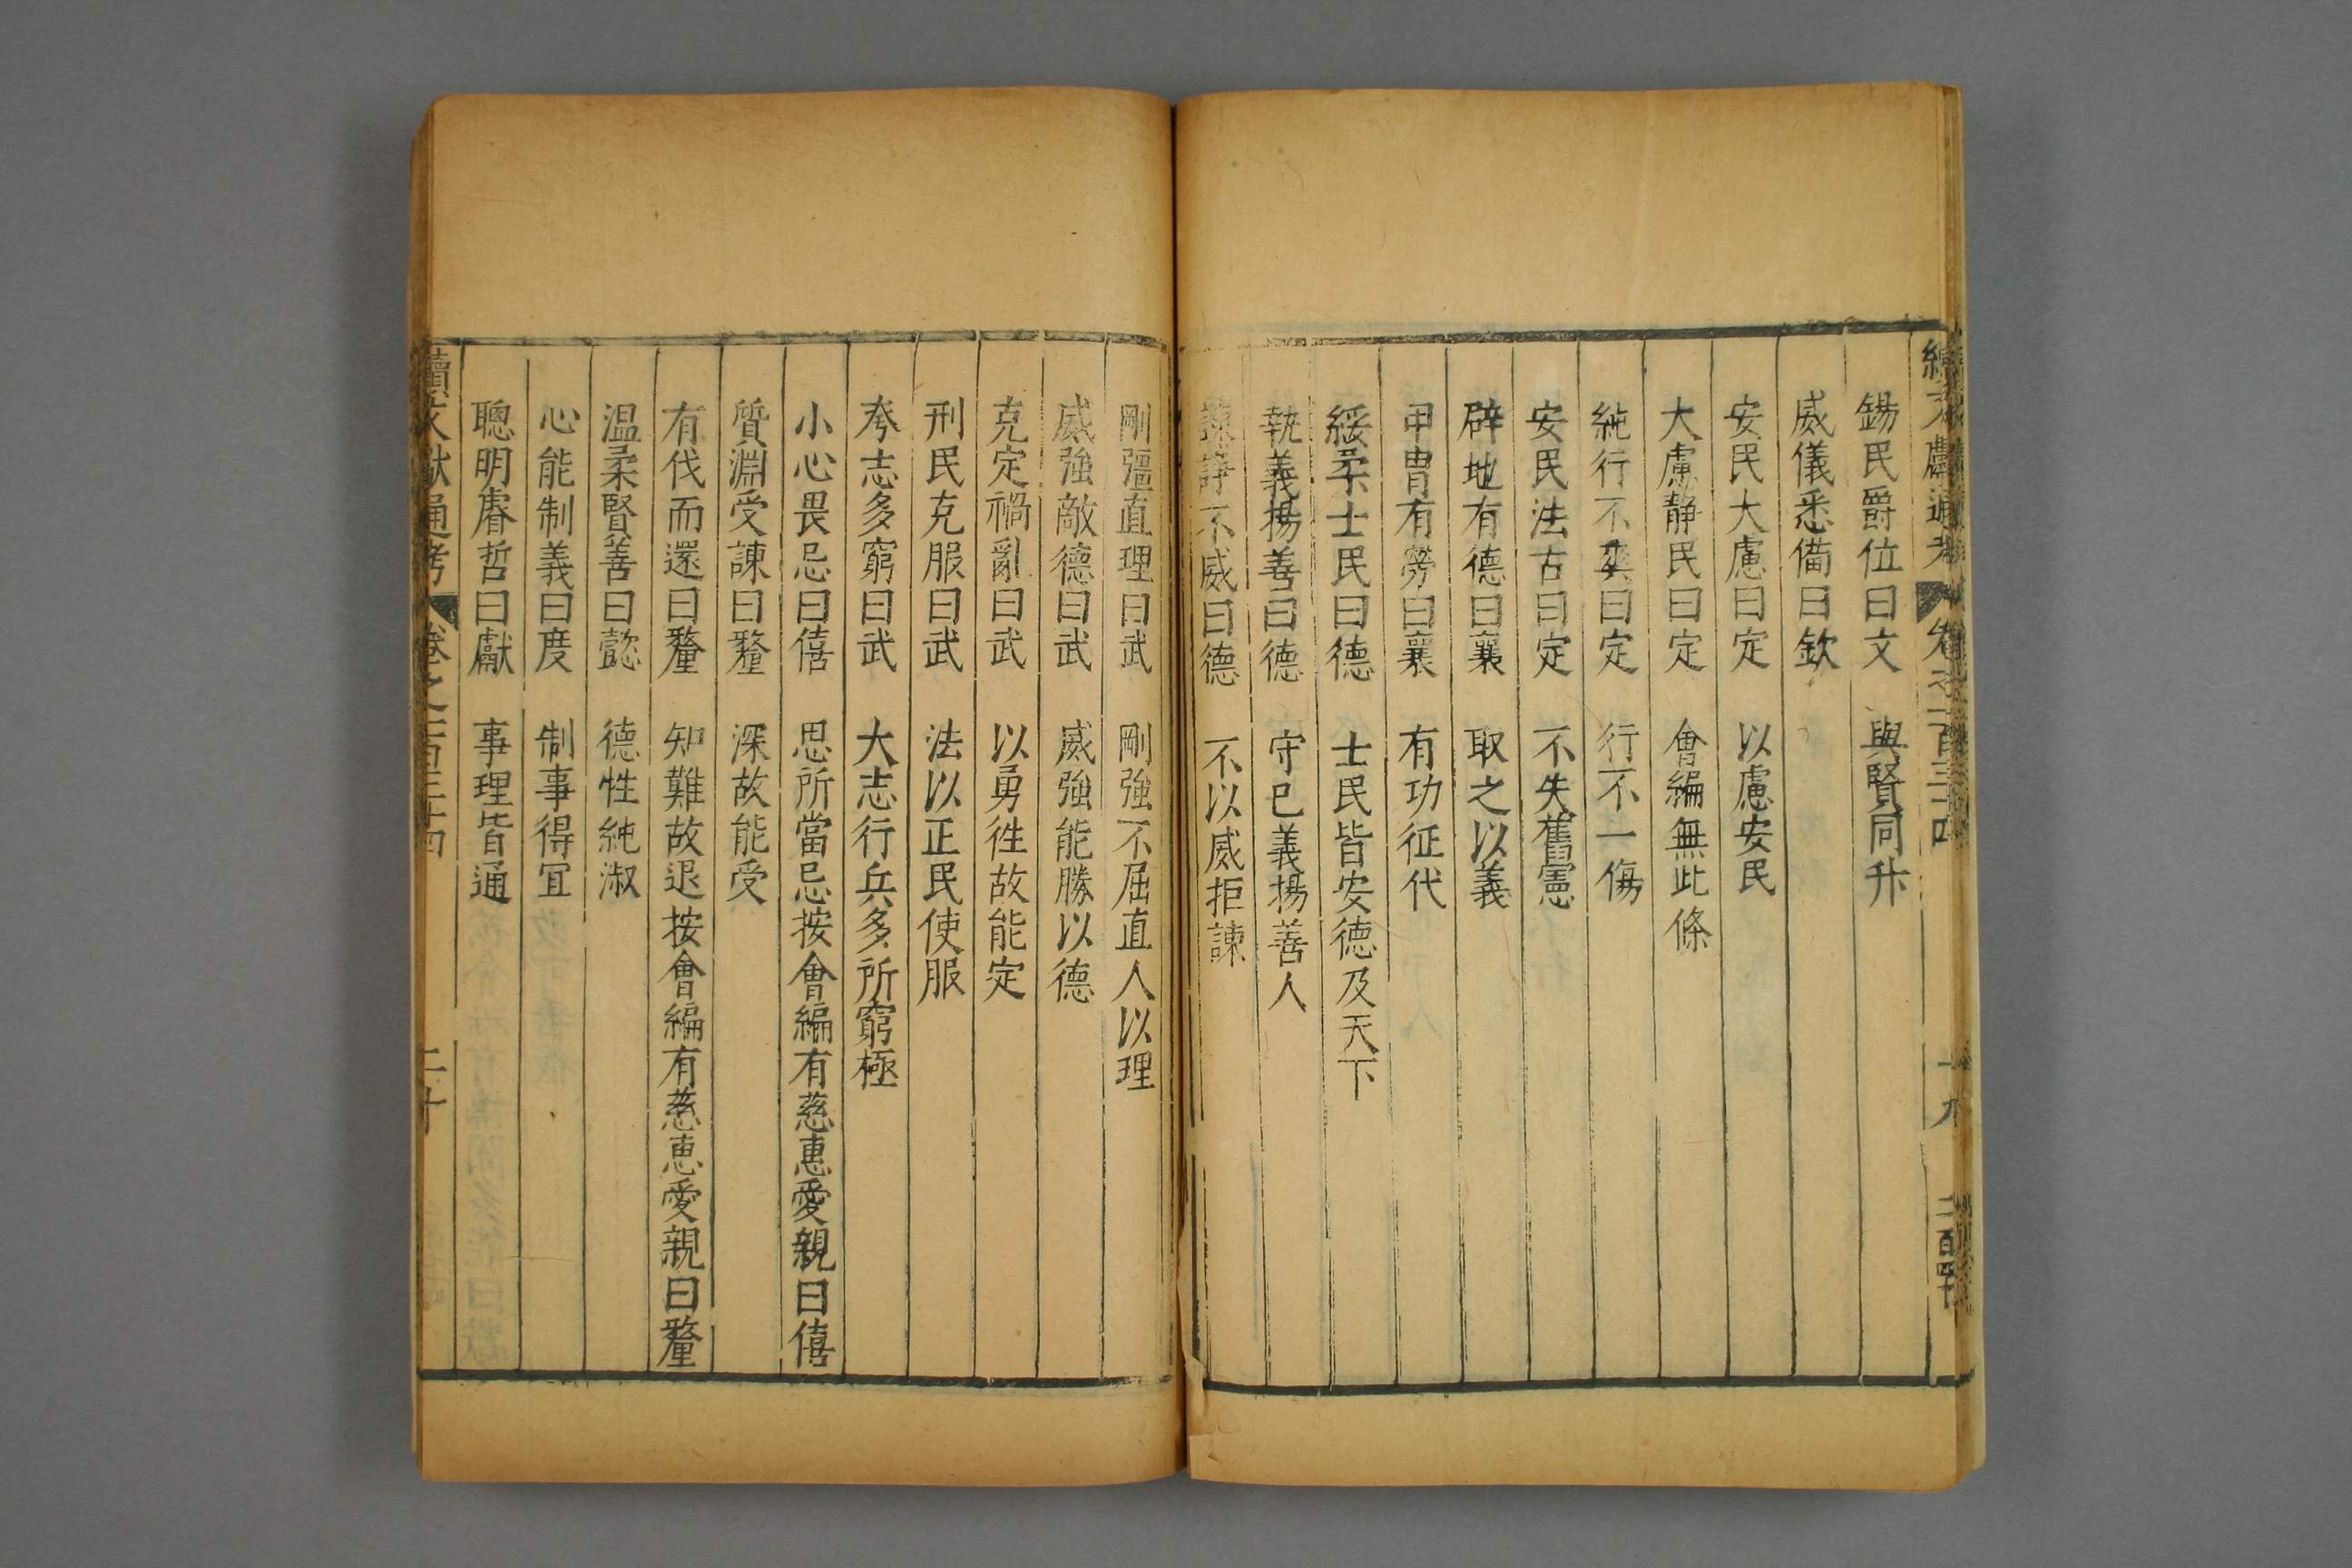 續文獻通考 卷之一百三十四 十九
錫民爵位曰文 與賢同升
威儀悉備曰欽
安民大慮曰定 以慮安民
大慮靜民曰定 會編無此條
純行不爽曰定 行不一傷
安民法古曰定 不失舊憲
辟地有德曰襄 取之以義
甲冑有勞曰襄 有功征代
綏柔士民曰德 士民皆安德及天下
執義揚善曰德 守己義揚善人
諫諍不威曰德 不以威拒諫
剛彊直理曰武 剛強不屈直人以理
威強敵德曰武 威強能勝以德
克定禍亂曰武 以勇徃故能定
刑民克服曰武 法以正民使服
夸志多窮曰武 大志行兵多所窮極
小心畏忌曰僖 思所當忌按會編有慈惠愛親曰僖
質淵受諫曰釐 深故能受
有伐而還曰釐 知難故退按會編有慈恵愛親曰釐
温柔賢善曰懿 德性純淑
心能制義曰度 制事得冝
聰明睿哲曰獻 事理皆通
續文獻通考 卷之一百三十四 二十